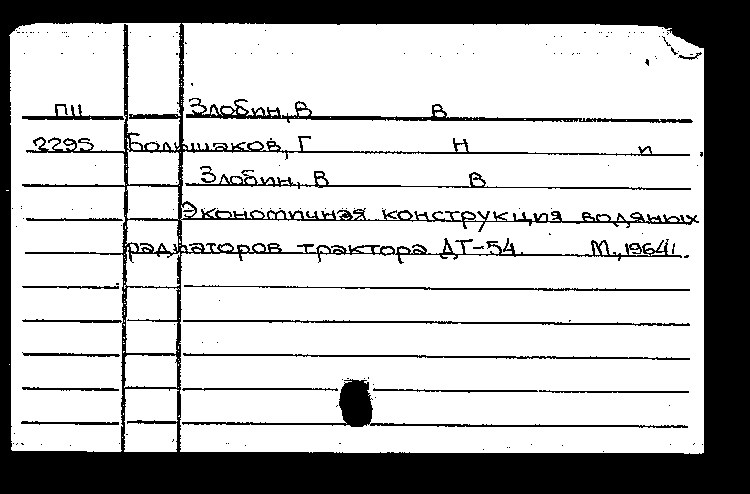 ПII Злобин, В В
2295 Большаков, Г Н и
Злобин, В В
Экономичная конструкция водяных
радиаторов трактора ДТ-54. М., 1964.